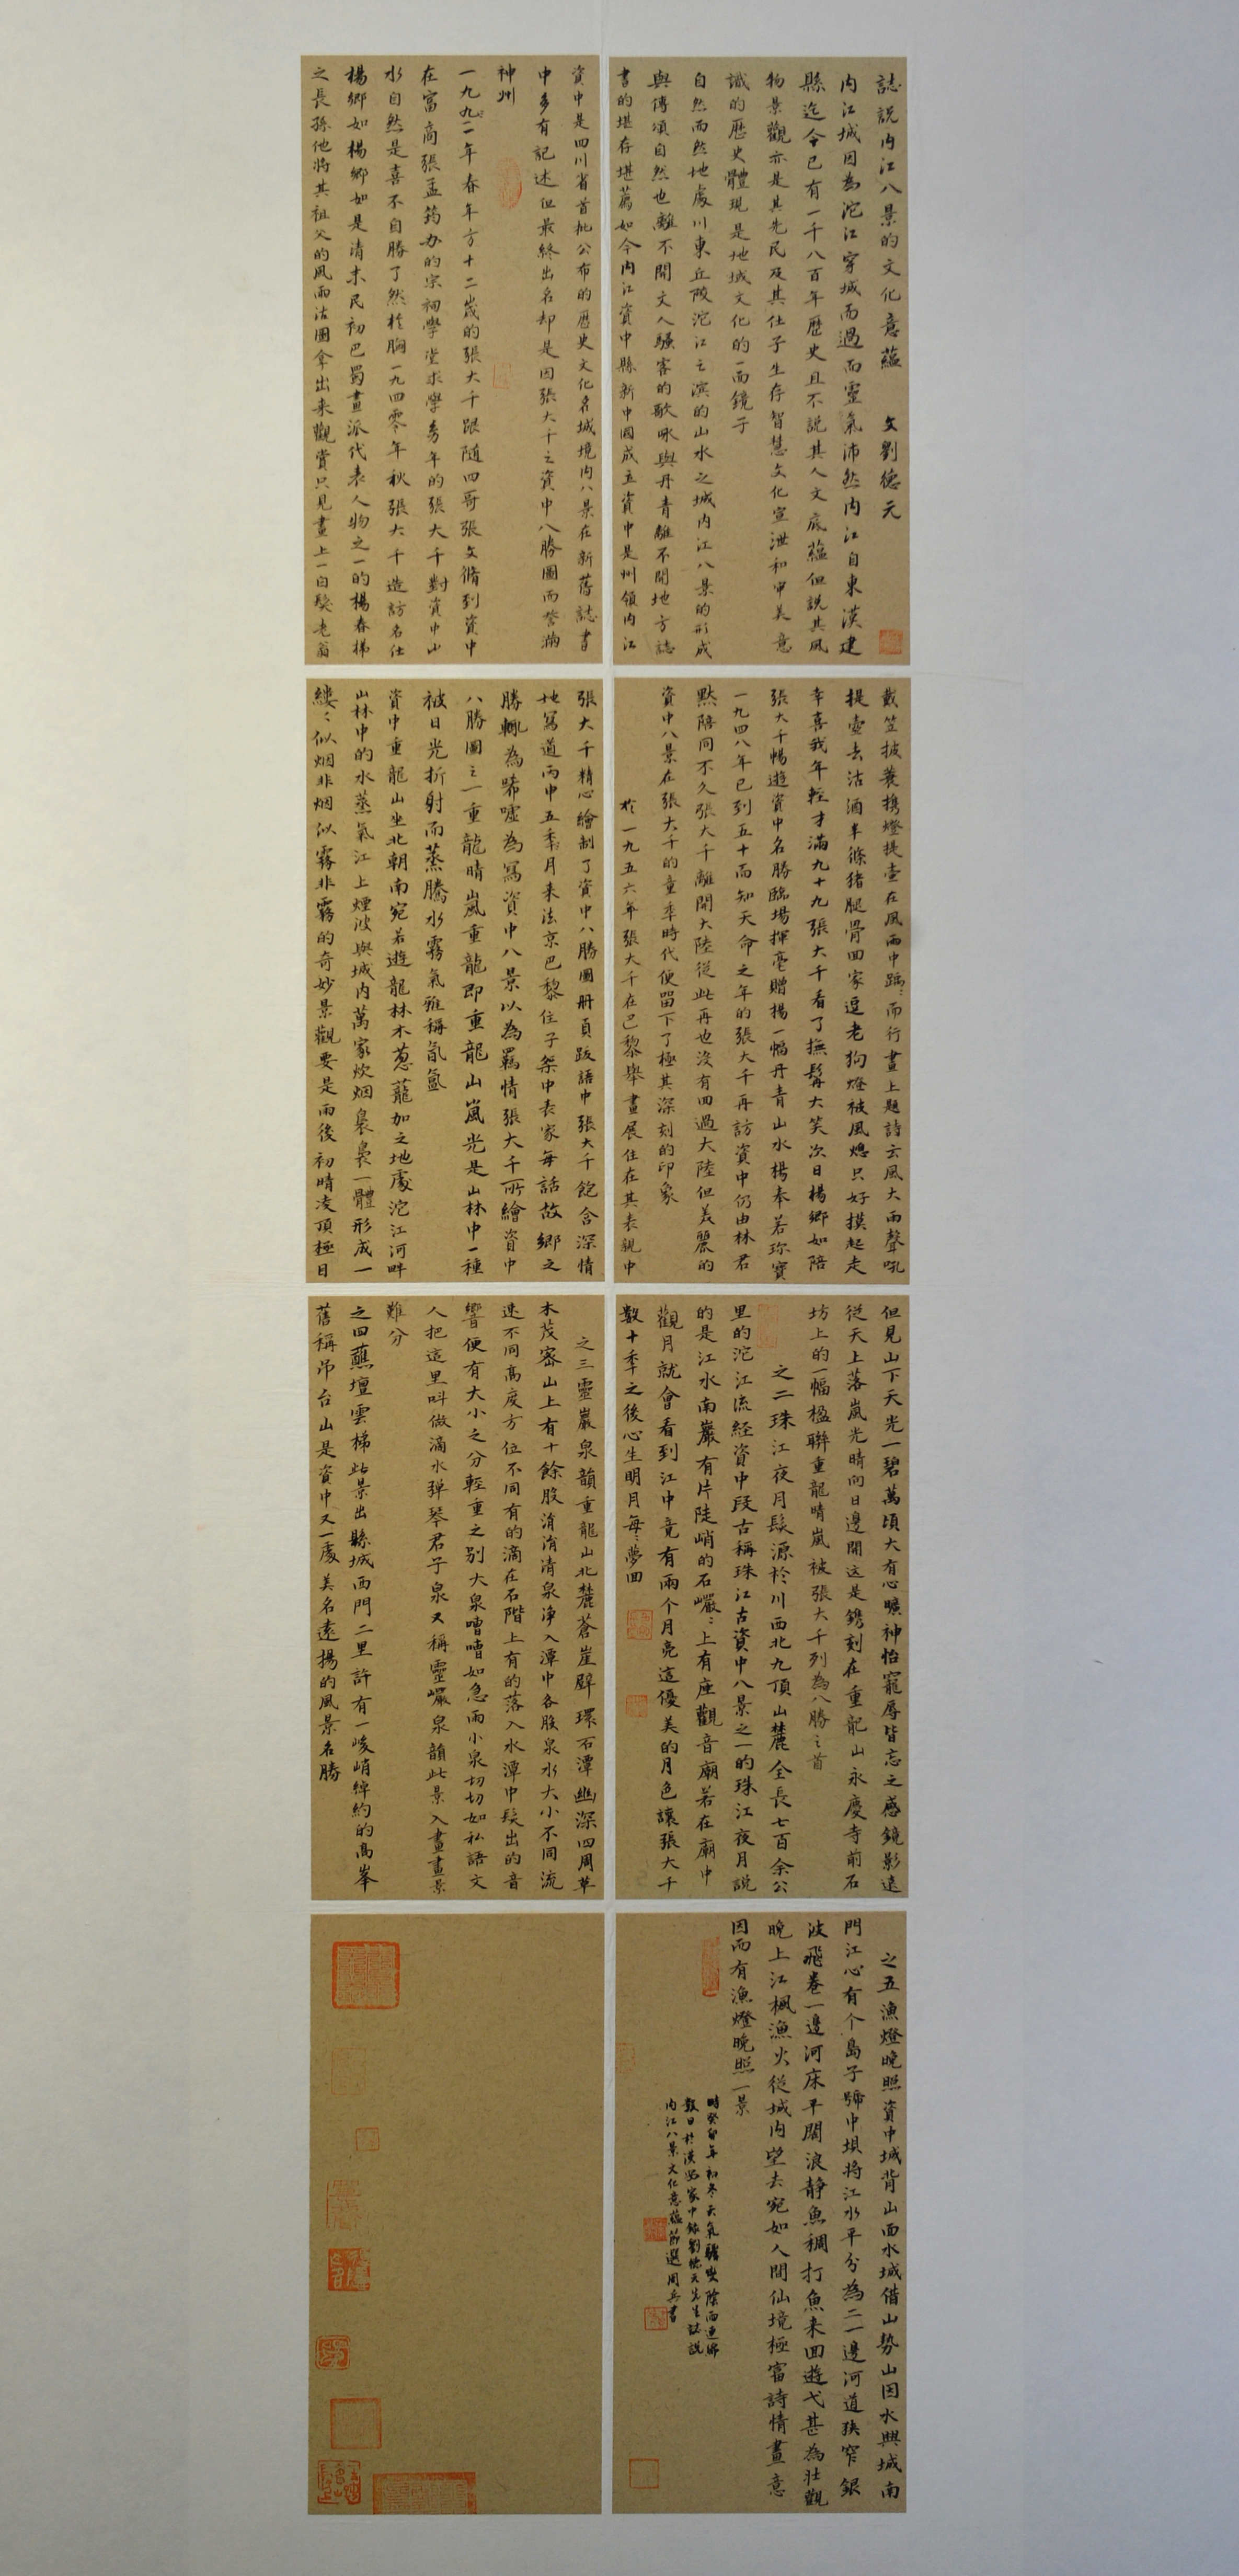 誌説内江八景的文化意蘊 文劉德元
内江城因為沱江穿城而過而靈氣沛然内江自東漢建
縣迄今已有一千八百年歷史且不説其人文底蘊但説其風
物景觀亦是其先民及其仕子生存智慧文化宣泄和审美意
識的歷史體現是地域文化的一面鏡子
自然而然地處川東丘陵沱江之濱的山水之城内江八景的形成
與傳頌自然也離不開文人騷客的歌咏與丹青離不開地方誌
書的堪存堪薦如今内江資中縣新中國成立資中是州領内江
資中是四川省首批公布的歷史文化名城境内八景在新舊誌書
中多有記述但最終出名却是因張大千之資中八勝圖而譽滿
神州
一九九二年春年方十二歲的張大千跟随四哥張文脩到資中
在富商張孟筠办的宗祠學堂求學青年的張大千對資中山
水自然是喜不自勝了然於胸一九四零年秋張大千造訪名仕
楊鄉如楊鄉如是清末民初巴蜀畫派代表人物之一的楊春梯
之長孫他將其祖父的風雨沽圖拿出来觀賞只見畫上一白髮老翁
戴笠披蓑携燈提壺在風雨中蹣〻而行畫上題詩云風大雨聲吼
提壺去沽酒半條猪腿骨回家逗老狗燈被風熄只好摸起走
幸喜我年輕才滿九十九張大千看了撫髯大笑次日楊鄉如陪
張大千暢遊資中名勝臨場揮毫贈揚一幅丹青山水楊奉若珎寶
一九四八年已到五十而知天命之年的張大千再訪資中仍由林君
默陪同不久張大千離開大陸從此再也沒有回過大陸但美麗的
資中八景在張大千的童年時代便留下了極其深刻的印象
於一九五六年張大千在巴黎舉畫展住在其表親中
張大千精心繪制了資中八勝圖冊頁跋語中張大千飽含深情
地寫道丙申五季月来法京巴黎住子粲中表家每話故鄉之
勝輒為唏嘘為寫資中八景以為羈情張大千所繪資中
八勝圖之一重龍晴嵐重龍即重龍山嵐光是山林中一種
被日光折射而蒸騰水霧氣雅稱氤氲
資中重龍山坐北朝南宛若遊龍林木葱蘢加之地處沱江河畔
山林中的水蒸氣江上煙波與城内萬家炊烟裊裊一體形成一
縷〻似烟非烟似霧非霧的奇妙景觀要是雨後初晴凌頂極目
但見山下天光一碧萬頃大有心曠神怡寵辱皆忘之感鏡影遠
從天上落嵐光晴向日邊開这是鐫刻在重龍山永慶寺前石
坊上的一幅楹聯重龍晴嵐被張大千列為八勝之首
之二珠江夜月髮源於川西北九頂山麓全長七百余公
里的沱江流经資中段古稱珠江古資中八景之一的珠江夜月説
的是江水南巖有片陡峭的石巖〻上有座觀音廟若在廟中
觀月就會看到江中竟有兩个月亮這優美的月色讓張大千
數十季之後心生明月每〻夢回
之三靈巖泉韻重龍山北麓蒼崖壁環石潭幽深四周草
木茂密山上有十餘股涓涓清泉净入潭中各股泉水大小不同流
速不同高度方位不同有的滴在石階上有的落入水潭中髮出的音
響便有大小之分輕重之别大泉嘈嘈如急雨小泉切切如私語文
人把這里叫做滴水弹琴君子泉又稱靈巖泉韻此景入畫畫景
難分
之四蘸壇雲梯此景出縣城西門二里許有一峻峭綽約的高峯
舊稱吊台山是資中又一處美名遠揚的風景名勝
之五漁燈晚照資中城背山面水城借山勢山因水興城南
門江心有个島子號中坝將江水平分為二一邊河道狭窄銀
波飛卷一邊河床平闊浪靜魚稠打魚来回遊弋甚為壯觀
晚上江楓漁火從城内望去宛如人間仙境極富詩情畫意
因而有漁燈晚照一景
時癸卯年初冬天氣驟變陰雨連綿
數日於漢安家中錄劉德元先生誌説
内江八景文化意蘊節選周兵書